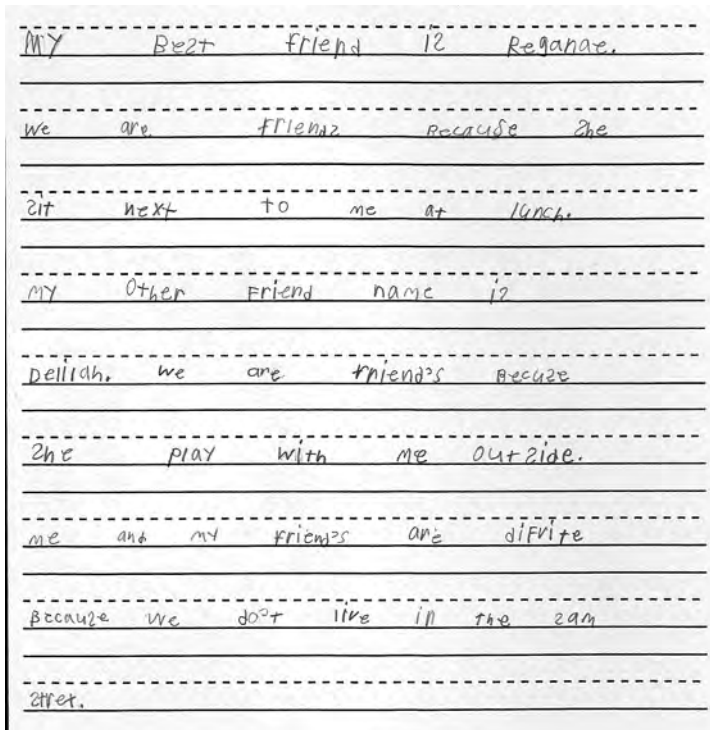 MY Best friend is Reganae.
We are friends Because she
sit next to me at lunch.
MY Other Friend name is
Deliah. we are friend's Becuze
she play with me outside.
me and my Friend's are difrite
Because we do't live in the sam
stret.